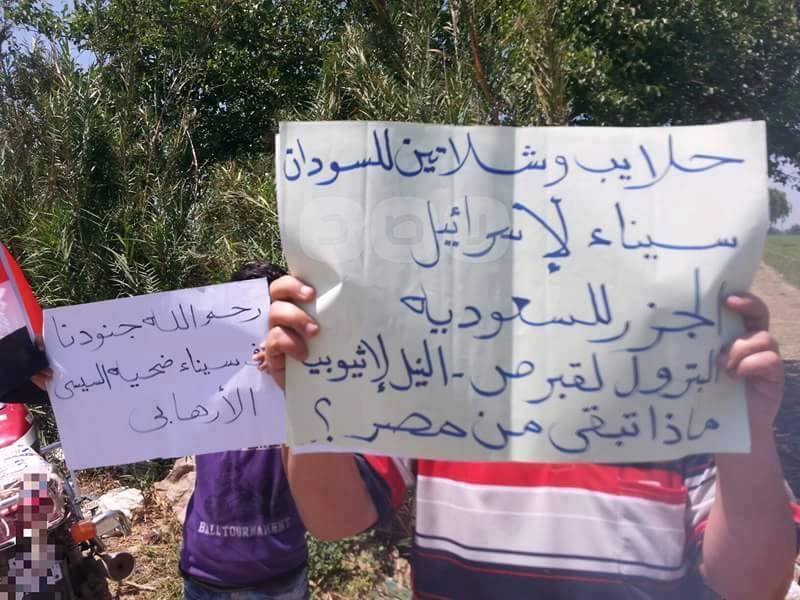 حلايب وشلاتين للسودان
سيناء لإسرائيل
الجزر للسعوديه
البترول لقبرص - النيل لاثيوبيا
ماذا تبقى من مصر ؟
رحم الله جنودنا
فى سيناء ضحية السيسى
الأرهابى
BALLTOURNAMENT